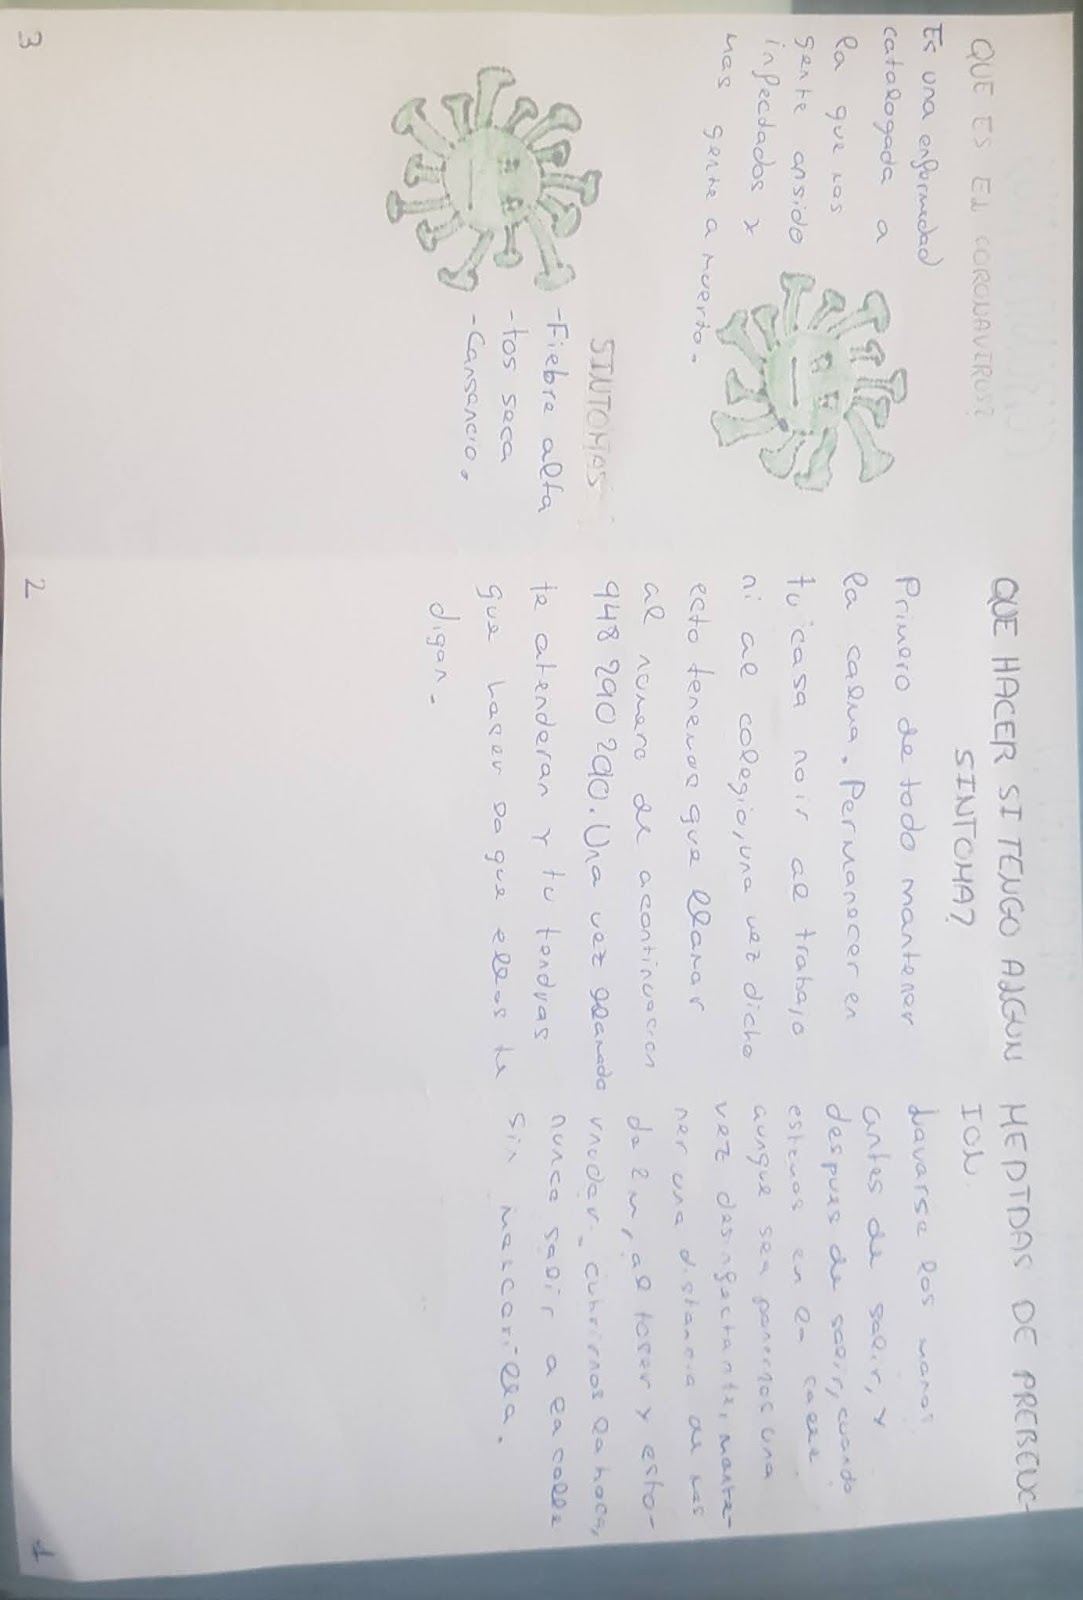 QUE ES EL CORONAVIRUS?
Es una enfermedad
catalogada a
la que nos
gente ansido
infectados y
mas gente a muerto.
SINTOMAS
-Fiebre alta
-tos seca
-Cansancio.
3
QUE HACER SI TENGO ALGUN
SINTOMA?
Primero de todo mantener
la calma. Permanecer en
tu casa no ir al trabajo
ni al colegio, una vez dicho
ecto tenemos que llamar
al numero de acontinuacion
948 290 290. Una vez llamado
te atenderan y tu tendras
que haser lo que ellos te
digan.
2
MEDIDAS DE PREBENC-
ION.
Lavarse las manos
antes de salir, y
despues de salir, cuando
estemos en la calle
aunque sea ponernos una
vez desinfectante, mante-
ner una distancia de mas
de 2 m, al toser y esto-
rnudar. cubrirnos la boca,
nunca salir a la calle
sin mascarilla.
1